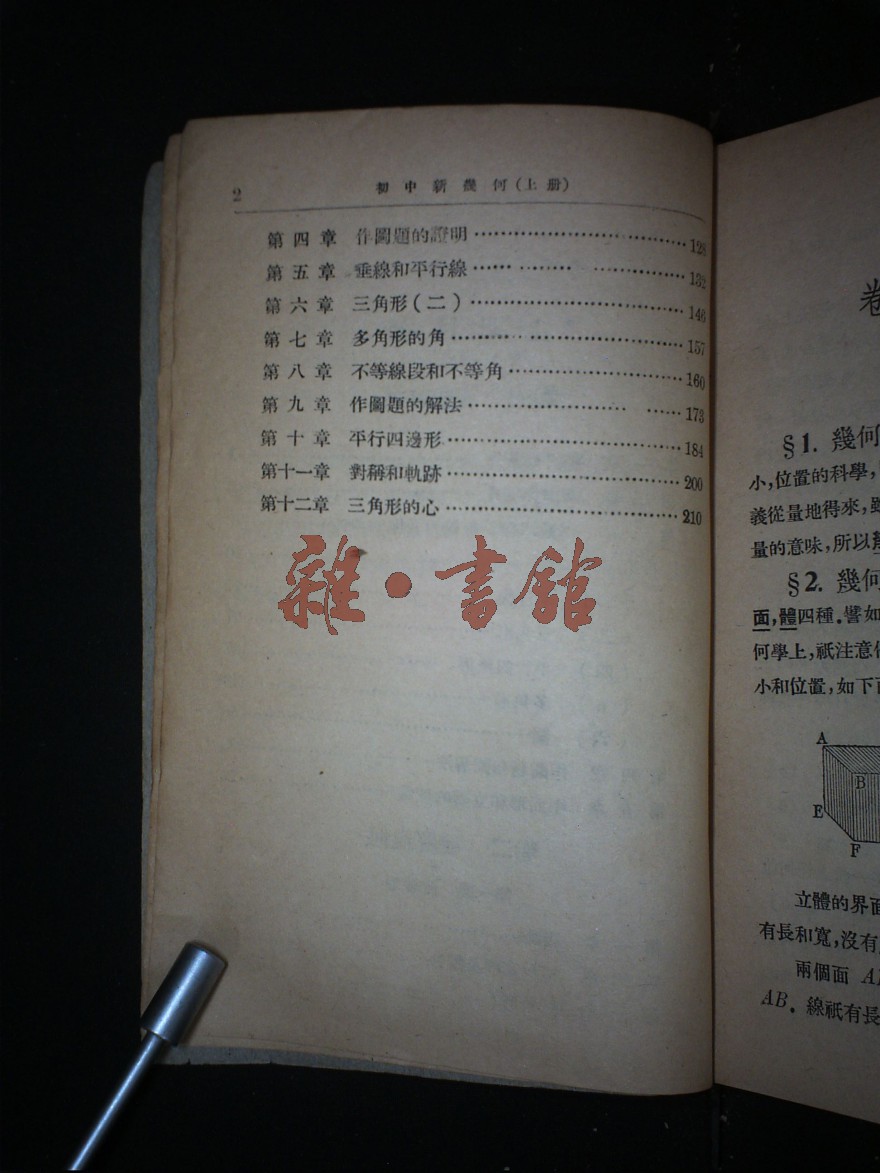 2
初中新幾何(上册)
第四章 作圖題的證明……………………………128
第五章 垂線和平行線…… ……… ……………132
第六章 三角形(二)……………………………146
第七章 多角形的角……………………………157
第八章 不等線段和不等角………………………160
第九章 作圖題的解法…………………… ……173
第十章 平行四邊形………………………………184
第十一章 對稱和軌跡………………………………200
第十二章 三角形的心………………………………210
雜·書館
卷
§1. 幾何
小,位置的科學,
義從量地得來,雖
量的意味,所以
§2. 幾何
面,體四種.譬如
何學上,祇注意
小和位置,如下
A
B
E
F
立體的界面
有長和寬,沒有
兩個面 A
AB. 線祇有長